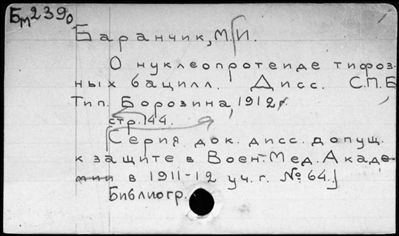 Бм2390
Баранчик, М.И.
О нуклеопротеиде тифоз-
ных бацилл. Дисс. С.П.Б
Тип. Борозина, 1912г.
стр. 144.
Серия док. дисс. допущ.
к защите в Воен. Мед. Акаде-
мии в 1911-12 уч. г. № 64.]
Библиогр.